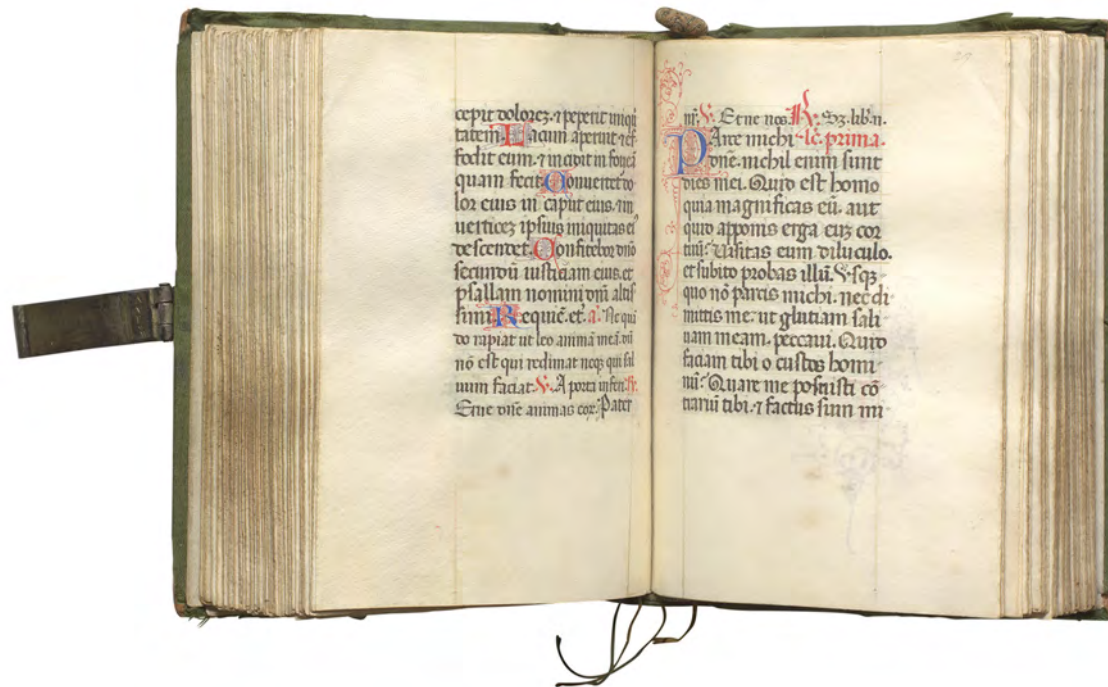 cepit dolorez. ⁊ peperit iniqui
tatem Lacum aperuit ⁊ ef
fodit eum. ⁊ incidit in foueā
quam fecit Conuertet᷑ do
lor eius in caput eius. ⁊ in
uerticez ipsius iniquitas eiꝰ
descendet. Confitebor dnō
secundū iusticiam eius. et
psallam nomini dnī altis
simi Requiē. et. a. Ne qn̄
do rapiat ut leo animā meā. dū
nō est qui redimat neqꝫ qui sal
uum faciat. V. A porta inferi. R.
Erue dn̄e animas eoꝝ. Pater
nr̄. V. Et ne nos. R. Sꝫ. lib̄. n.
Parce michi lc̄. prima.
dn̄e. nichil enim sunt
dies mei. Quid est homo
quia magnificas eū. aut
quid apponis erga euꝫ cor
tuū: Uisitas eum diluculo.
et subito probas illū. Vsqꝫ
quo nō parcis michi. nec di
mittis me: ut glutiam sali
uam meam. peccaui. Quid
faciam tibi o custos homi
nū: Quare me posuisti cō
trariū tibi. ⁊ factus sum mi